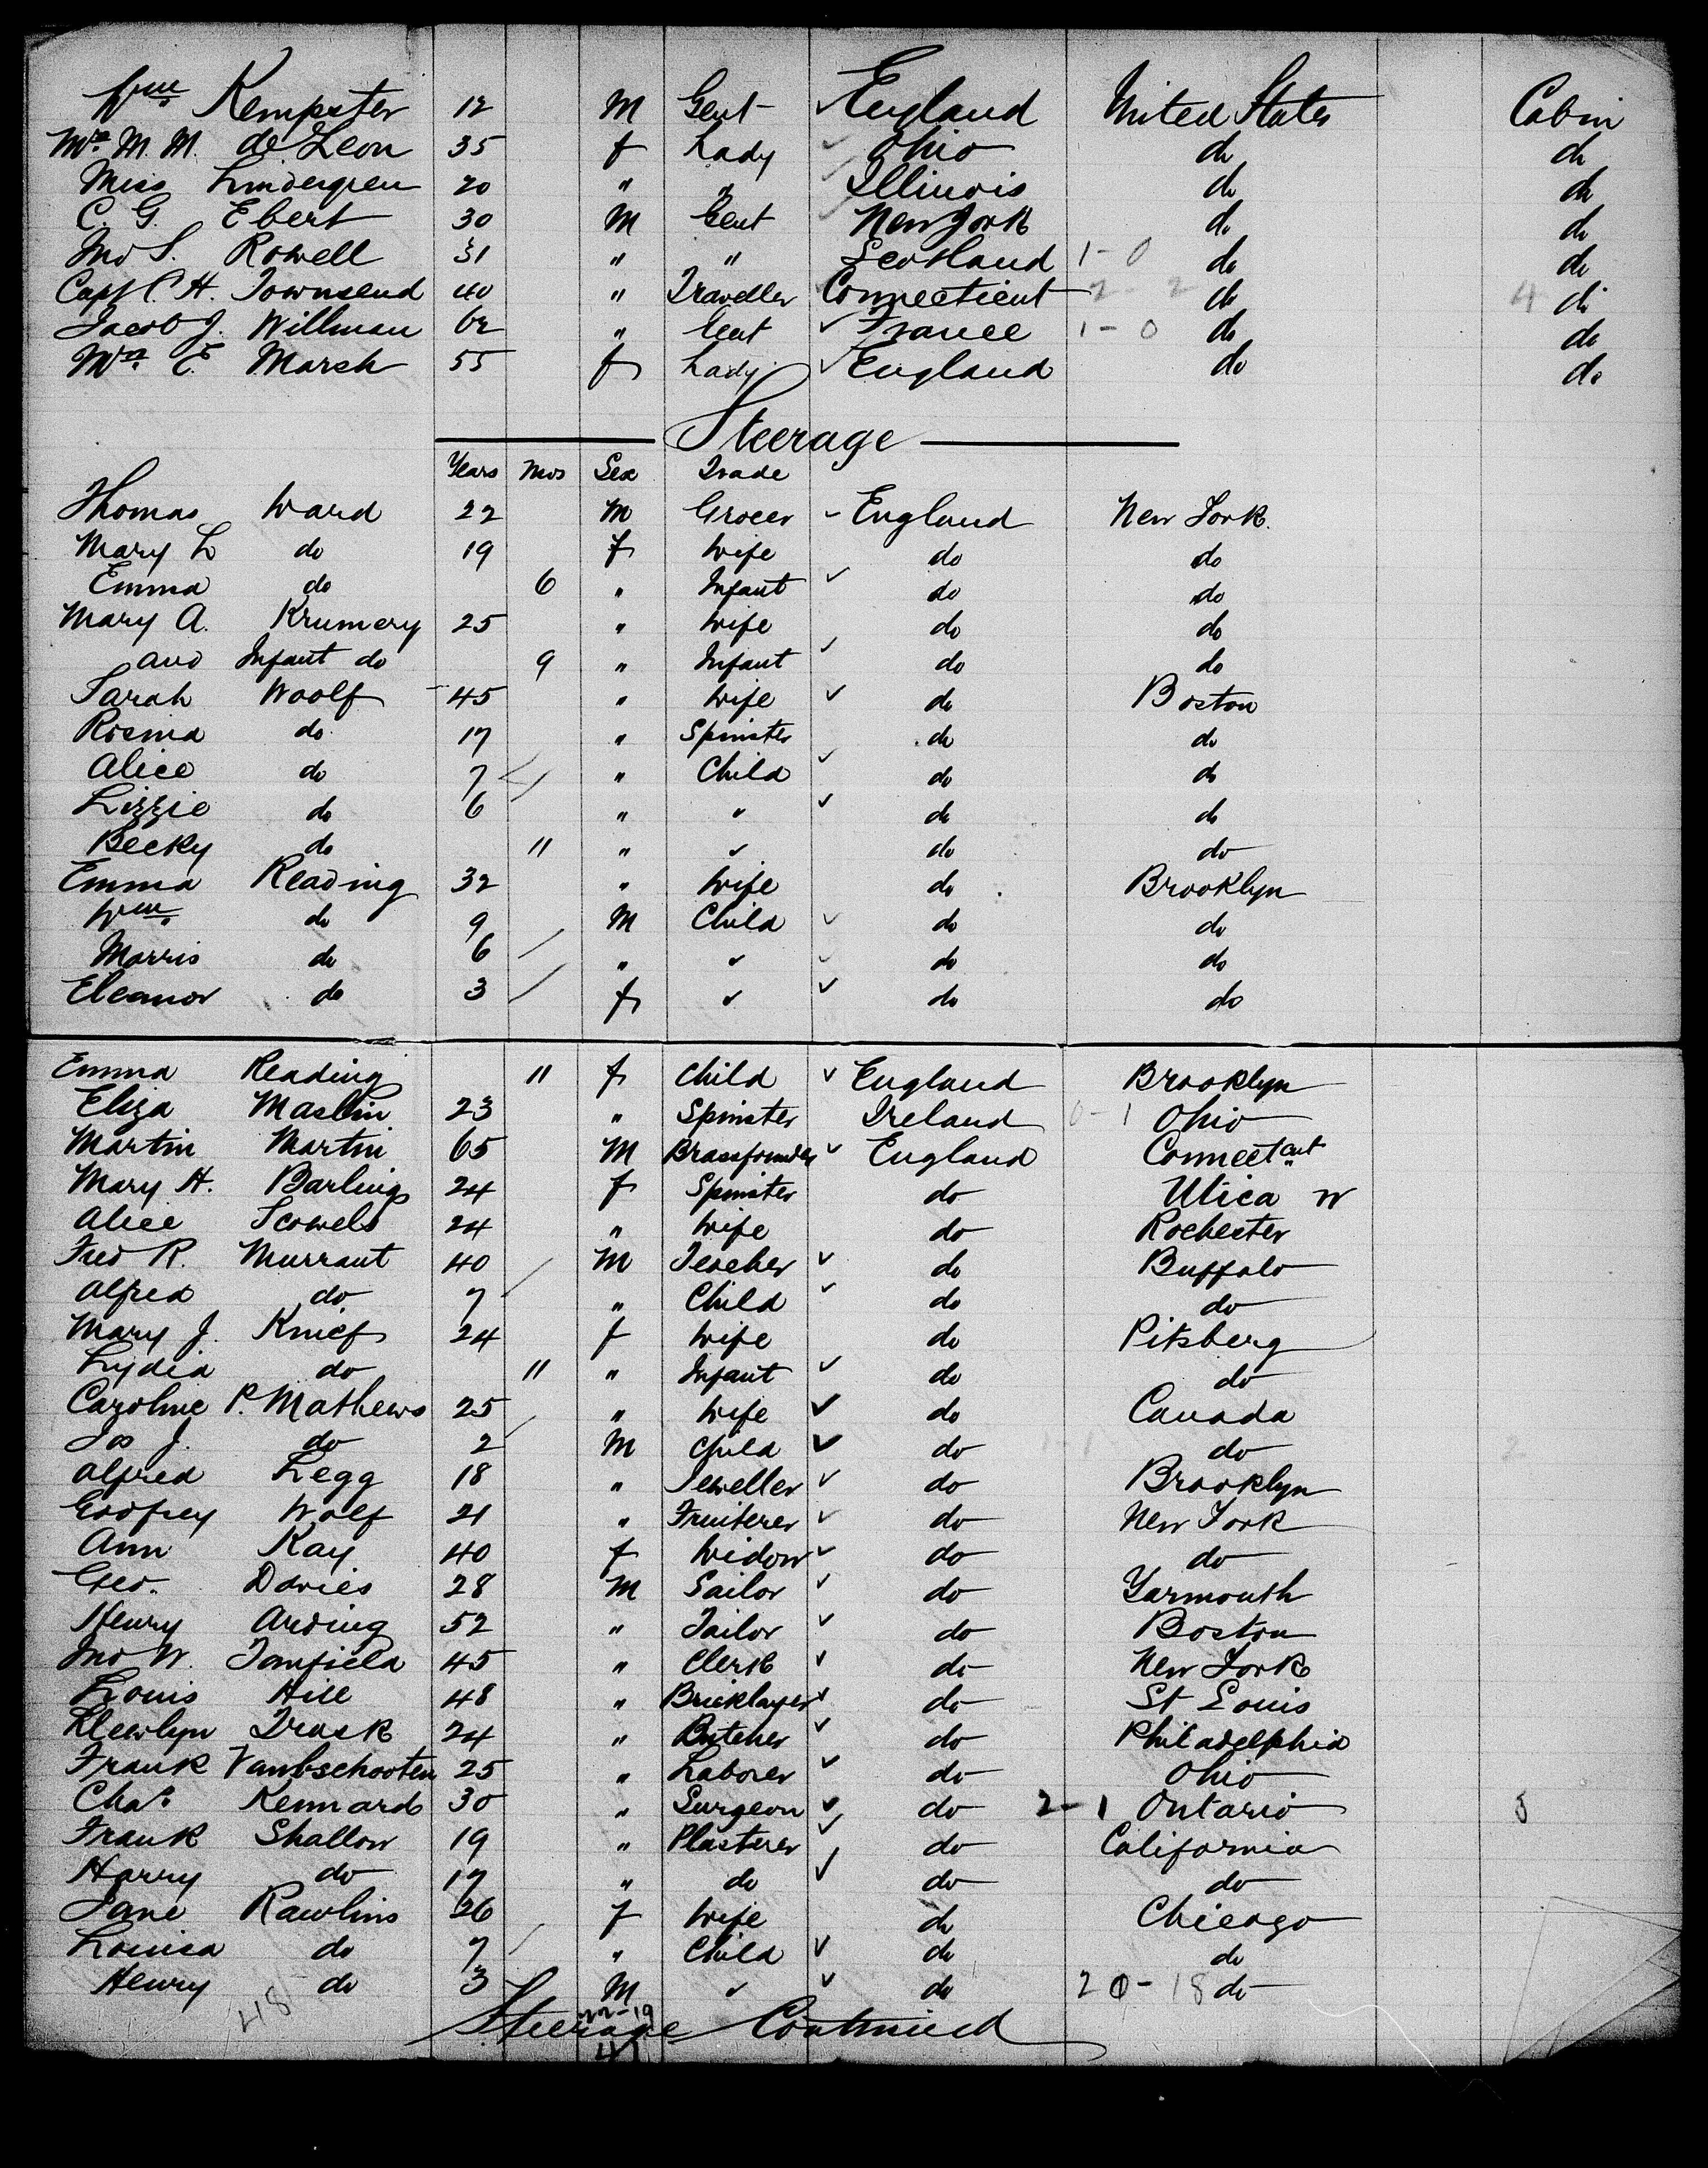 Wm. Kempster 12 M Gent England United States Cabin
Mrs. M. M. de Leon 35 f Lady Ohio do do
Miss Lindergren 20 " " Illinois do do
C. G. Ebert 30 M Gent New York do do
Jno S. Rowell 31 " " Scotland 1-0 do do
Capt C. H. Townsend 40 " Traveller Connecticut 2-2 do 4 do
Jacob J. Willman 62 " Gent France 1-0 do do
Mrs. E. Marsh 55 f Lady England do do
Steerage
Years Mos Sex Trade
Thomas Ward 22 M Grocer England New York.
Mary L do 19 f Wife do do
Emma do 6 " Infant do do
Mary A. Krumery 25 " Wife do do
and Infant do 9 " Infant do do
Sarah Woolf 45 " Wife do Boston
Rosina do 17 " Spinster do do
Alice do 7 " Child do do
Lizzie do 6 " " do do
Becky do 11 " " do do
Emma Reading 32 " Wife do Brooklyn
Wm. do 9 M Child do do
Morris do 6 " " do do
Eleanor do 3 f " do do
Emma Reading 11 f Child England Brooklyn
Eliza Maslin 23 " Spinster Ireland 0-1 Ohio
Martin Martin 65 M Brassfounder England Connectcut
Mary H. Barling 24 f Spinster do Utica
Alice Scowels 24 " Wife do Rochester
Fred R. Murrant 40 M Teacher do Buffalo
Alfred do 7 " Child do do
Mary J. Knief 24 f Wife do Pitsberg
Lydia do 11 " Infant do do
Caroline P. Mathews 25 " Wife do Canada
Jos J. do 2 M Child do do
Alfred Legg 18 " Jeweller do Brooklyn
Godfrey Wolf 21 " Fruiterer do New York
Ann Kay 40 f Widow do do
Geo. Davies 28 M Sailor do Yarmouth
Henry Arding 52 " Tailor do Boston
Jno W. Tanfield 45 " Clerk do New York
Louis Hill 48 " Bricklayer do St Louis
Llewlyn Trask 24 " Butcher do Philadelphia
Frank Vanbschooten 25 " Laborer do Ohio
Chas. Kennard 30 " Surgeon do 2-1 Ontario 5
Frank Shallow 19 " Plasterer do California
Harry do 17 " do do do
Jane Rawlins 26 f Wife do Chicago
Louisa do 7 " Child do do
Henry do 3 M " do 20-18 do
418 22-19
Steerage Continued
41